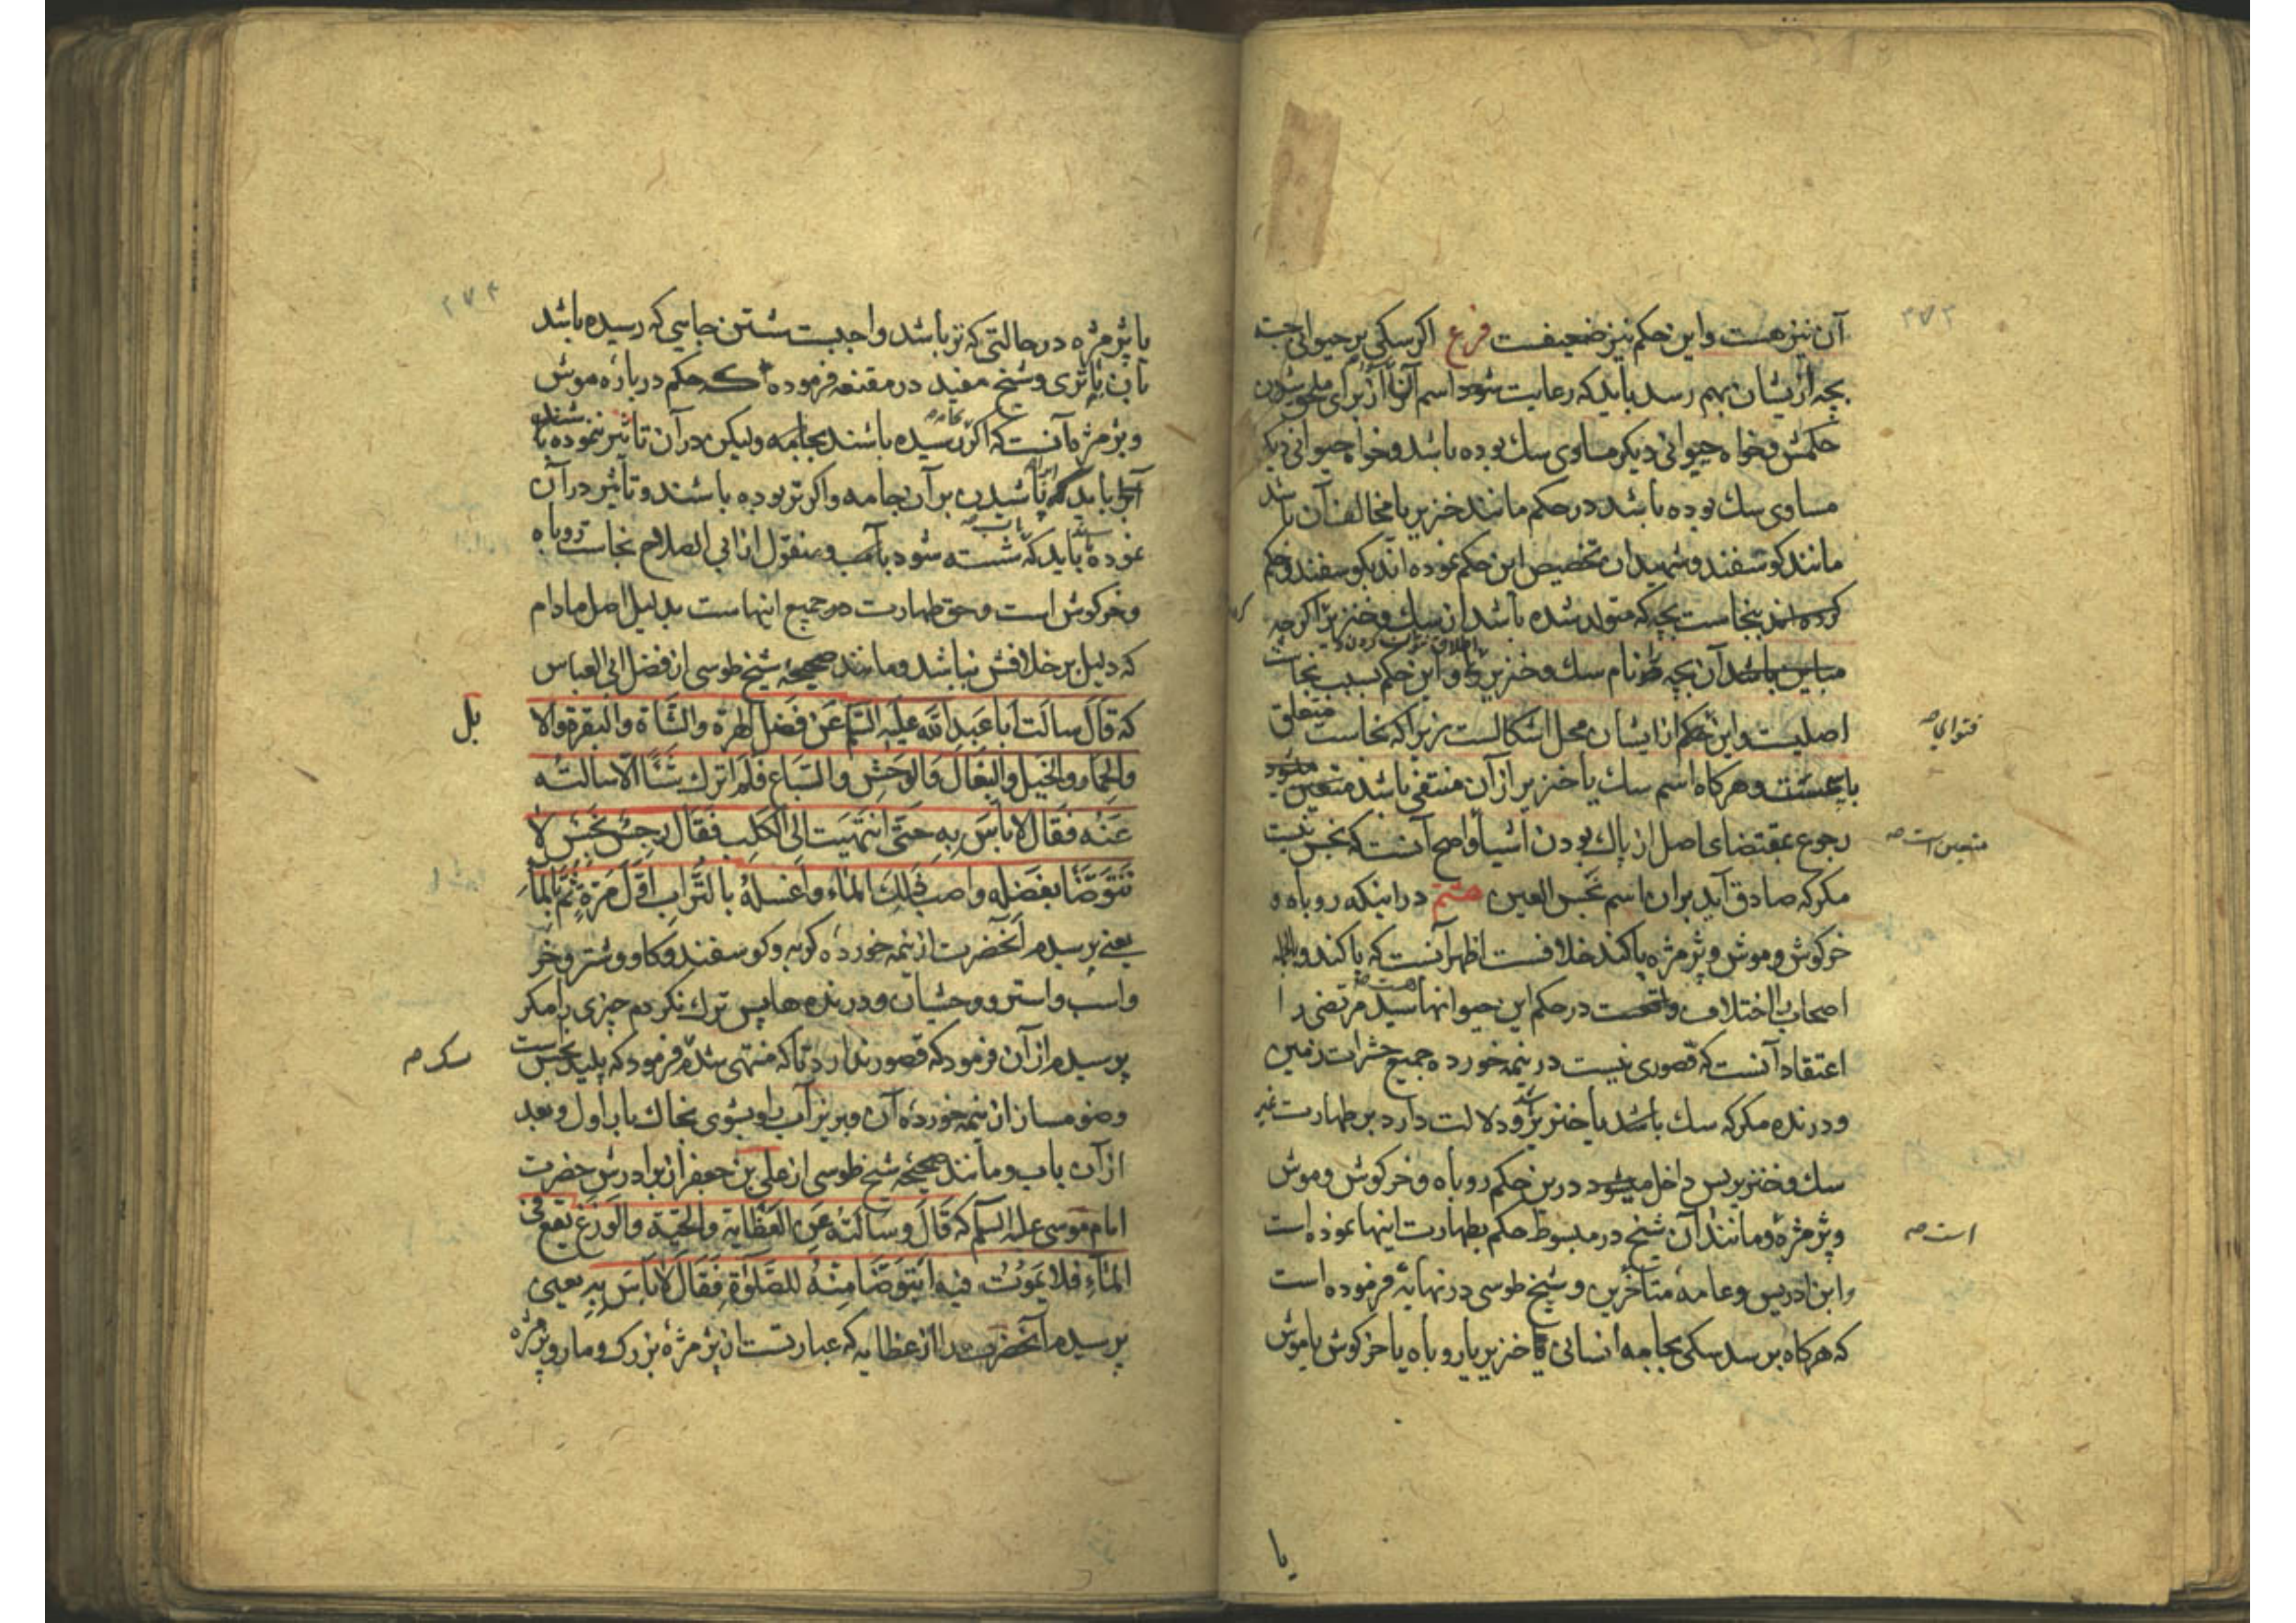 ۲۷۳
آن نیز هست و این حکم نیز ضعیفست فرع اکر سکی بر حیوانی جست
بچه از یشان بهم رسد باید که رعایت شود اسم آنرا از برای ملحق شدن
حکمش و خواه حیوانی دیکر مساوی سك بوده باشد و خواه حیوانی دیکر
مساوی سك بوده باشد در حکم مانند خنزیر یا مخالف آن باشد
مانند کوسفند و شهیدان تخصیص این حکم نموده اند بکوسفند و حکم
کرده اند بنجاست بچه که متولد شده باشد از سك و خنزیر اکرچه
مباین باشد آن بچه نام سك و خنزیر را و این حکم بسبب نجاست
اصلیست و این حکم از ایشان محل اشکالست زیرا که نجاست متعلق
فتوای صح
باسمست و هرکاه اسم سك یا خنزیر از آن منتفی باشد متعین میشود
رجوع بمقتضای اصل از پاك بودن اشیا و اصح آنست که نجس نیست
متعین است صح
مکر که صادق آید بران اسم نجس العین ختم در اینکه روباه و
خرکوش و موش و پژمژه پاکند خلافست اظهر آنست که پاکند و
اصحاب را اختلاف در حکم این حیوانها هست صح سید مرتضی را
اعتقاد آنست که قصوری نیست در نیمه خورده جمیع حشرات زمین
و درنده مکر که سك باشد یا خنزیر و دلالت دارد بر طهارت غیر
سك و خنزیر پس داخل میشود درین حکم روباه و خرکوش و موش
و پژمژه و مانند آن شیخ در مبسوط حکم بطهارت اینها نموده است
است صح
و ابن ادریس و عامه متأخرین و شیخ طوسی در نهایه فرموده است
که هرکاه برسد سکی بجامه انسانی یا خنزیر یا روباه یا خرکوش یا موش
یا
۲۷۴
یا پژمژه در حالتی که تر باشد واجبست شستن جایی که رسیده باشد
بآن با تری و شیخ مفید در مقنعه فرموده که حکم درباره موش
و پژمژه آنست که اکر رسیده باشند بجامه ولیکن در آن تأثیر ننموده باشند
باید که پاشیدن بر آن جامه و اکر تر بوده باشند و تأثیر در آن
نموده باید که شسته شود بآب و منقول از ابی الصلاح نجاست روباه
و خرکوش است و حق طهارت در جمیع اینهاست بدلیل اصل مادام
که دلیل بر خلافش نباشد و مانند صحیحه شیخ طوسی از فضل ابی العباس
که قال سالت ابا عبد الله علیه السلم عن فضل الهرة والشاة والبقرة والا
بل
والحمار والخیل والبغال والوحش والسباع فلم اترك شیئا الا سالته
عنه فقال لا باس به حتی انتهیت الی الکلب فقال رجس نجس لا
تتوضا بفضله واصبب ذلك الماء واغسله بالتراب اول مرة ثم بالماء
یعنی پرسیدم آنحضرت از نیمه خورده کربه و کوسفند و کاو و شتر و خر
و اسب و استر و وحشیان و درنده ها پس ترك نکردم چیزی را مکر
پرسیدم از آن فرمود که قصور ندارد تا که منتهی شد فرمود که پلید نجس است
سک صح
وضو مساز از نیمه خورده آن و بریز آب را و بشوی بخاك بار اول و بعد
از آن بآب و مانند صحیحه شیخ طوسی از علی بن جعفر از برادرش حضرت
امام موسی علیه السلم که قال وسالته عن العظایة والحیة والوزغ یقع فی
الماء فلا یموت فیه ایتوضا منه للصلوة فقال لا باس به یعنی
پرسیدم آنحضرت را از عظایه که عبارتست از پژمژه بزرك و مار و پژمژه